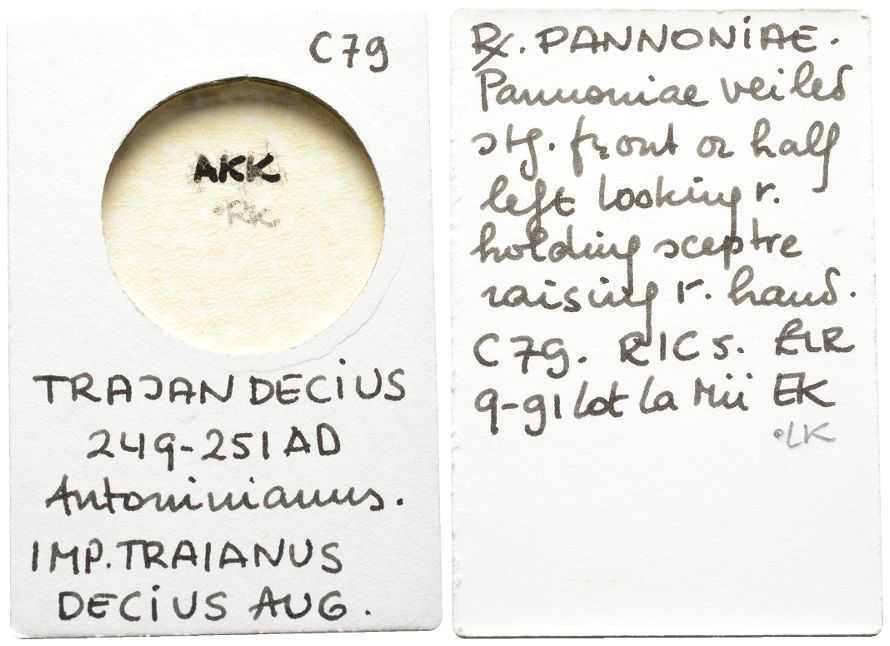 C79
AKK
•RK
TRAJAN DECIUS
249-251 AD
Antoninianus.
IMP. TRAIANUS
DECIUS AUG.
R. PANNONIAE.
Pannoniae veiled
stg. front or half
left looking r.
holding sceptre
raising r. hand.
C 79. RIC 5.
9-91 lot La EK
•LK